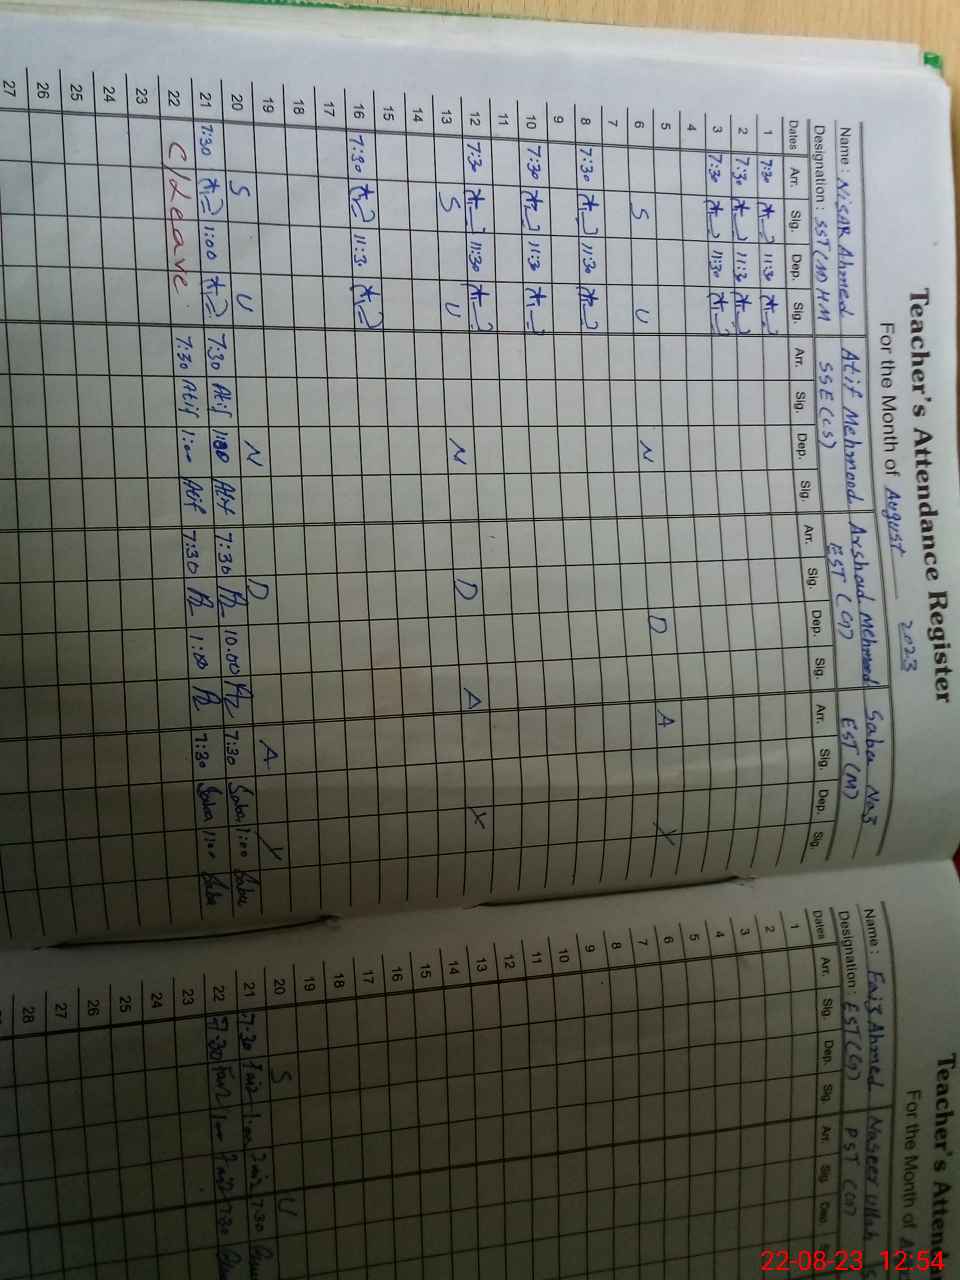 Teacher's Attendance Register
For the Month of August 2023
Name: Nisar Ahmed Atif Mehmood Arshad Mehmood Saba Naz
Designation: SST(M) HM SSE(CS) EST(G) EST(M)
Dates Arr. Sig. Dep. Sig. Arr. Sig. Dep. Sig. Arr. Sig. Dep. Sig. Arr. Sig. Dep. Sig.
1 7:30 11:30
2 7:30 11:30
3 7:30 11:30
4
5
6 S U N D A Y
7
8 7:30 11:30
9
10 7:30 11:30
11
12 7:30 11:30
13 S U N D A Y
14
15
16 7:30 11:30
17
18
19
20 S U N D A Y
21 7:30 1:00 7:30 Atif 1:00 Atif 7:30 10.00 7:30 Saba 1:00 Saba
22 C/Leave 7:30 Atif 1:00 Atif 7:30 1:00 7:30 Saba 1:00 Saba
23
24
25
26
27
Teacher's Atten
For the Month of A
Name: Faiz Ahmed Naseer Ullah
Designation: EST(G) PST(G)
Dates Arr. Sig. Dep. Sig. Arr. Sig. Dep. S
1
2
3
4
5
6
7
8
9
10
11
12
13
14
15
16
17
18
19
20 S U
21 7:30 Faiz 1:00 Faiz 7:30
22 7:30 Faiz 1:00 Faiz 7:30
23
24
25
26
27
28
22-08-23 12:54